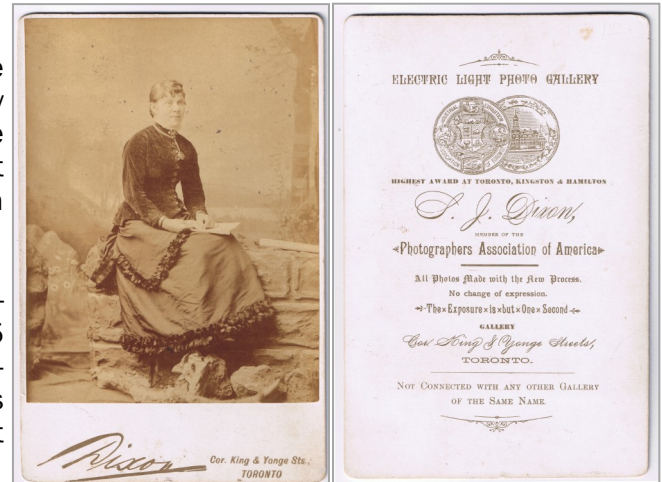 Dixon
Cor. King & Yonge Sts.
TORONTO
ELECTRIC LIGHT PHOTO GALLERY
HIGHEST AWARD AT TORONTO, KINGSTON & HAMILTON
S. J. Dixon,
MEMBER OF THE
Photographers Association of America
All Photos Made with the New Process.
No change of expression.
The × Exposure × is × but × One × Second
GALLERY
Cor King & Yonge Streets,
TORONTO.
NOT CONNECTED WITH ANY OTHER GALLERY
OF THE SAME NAME.